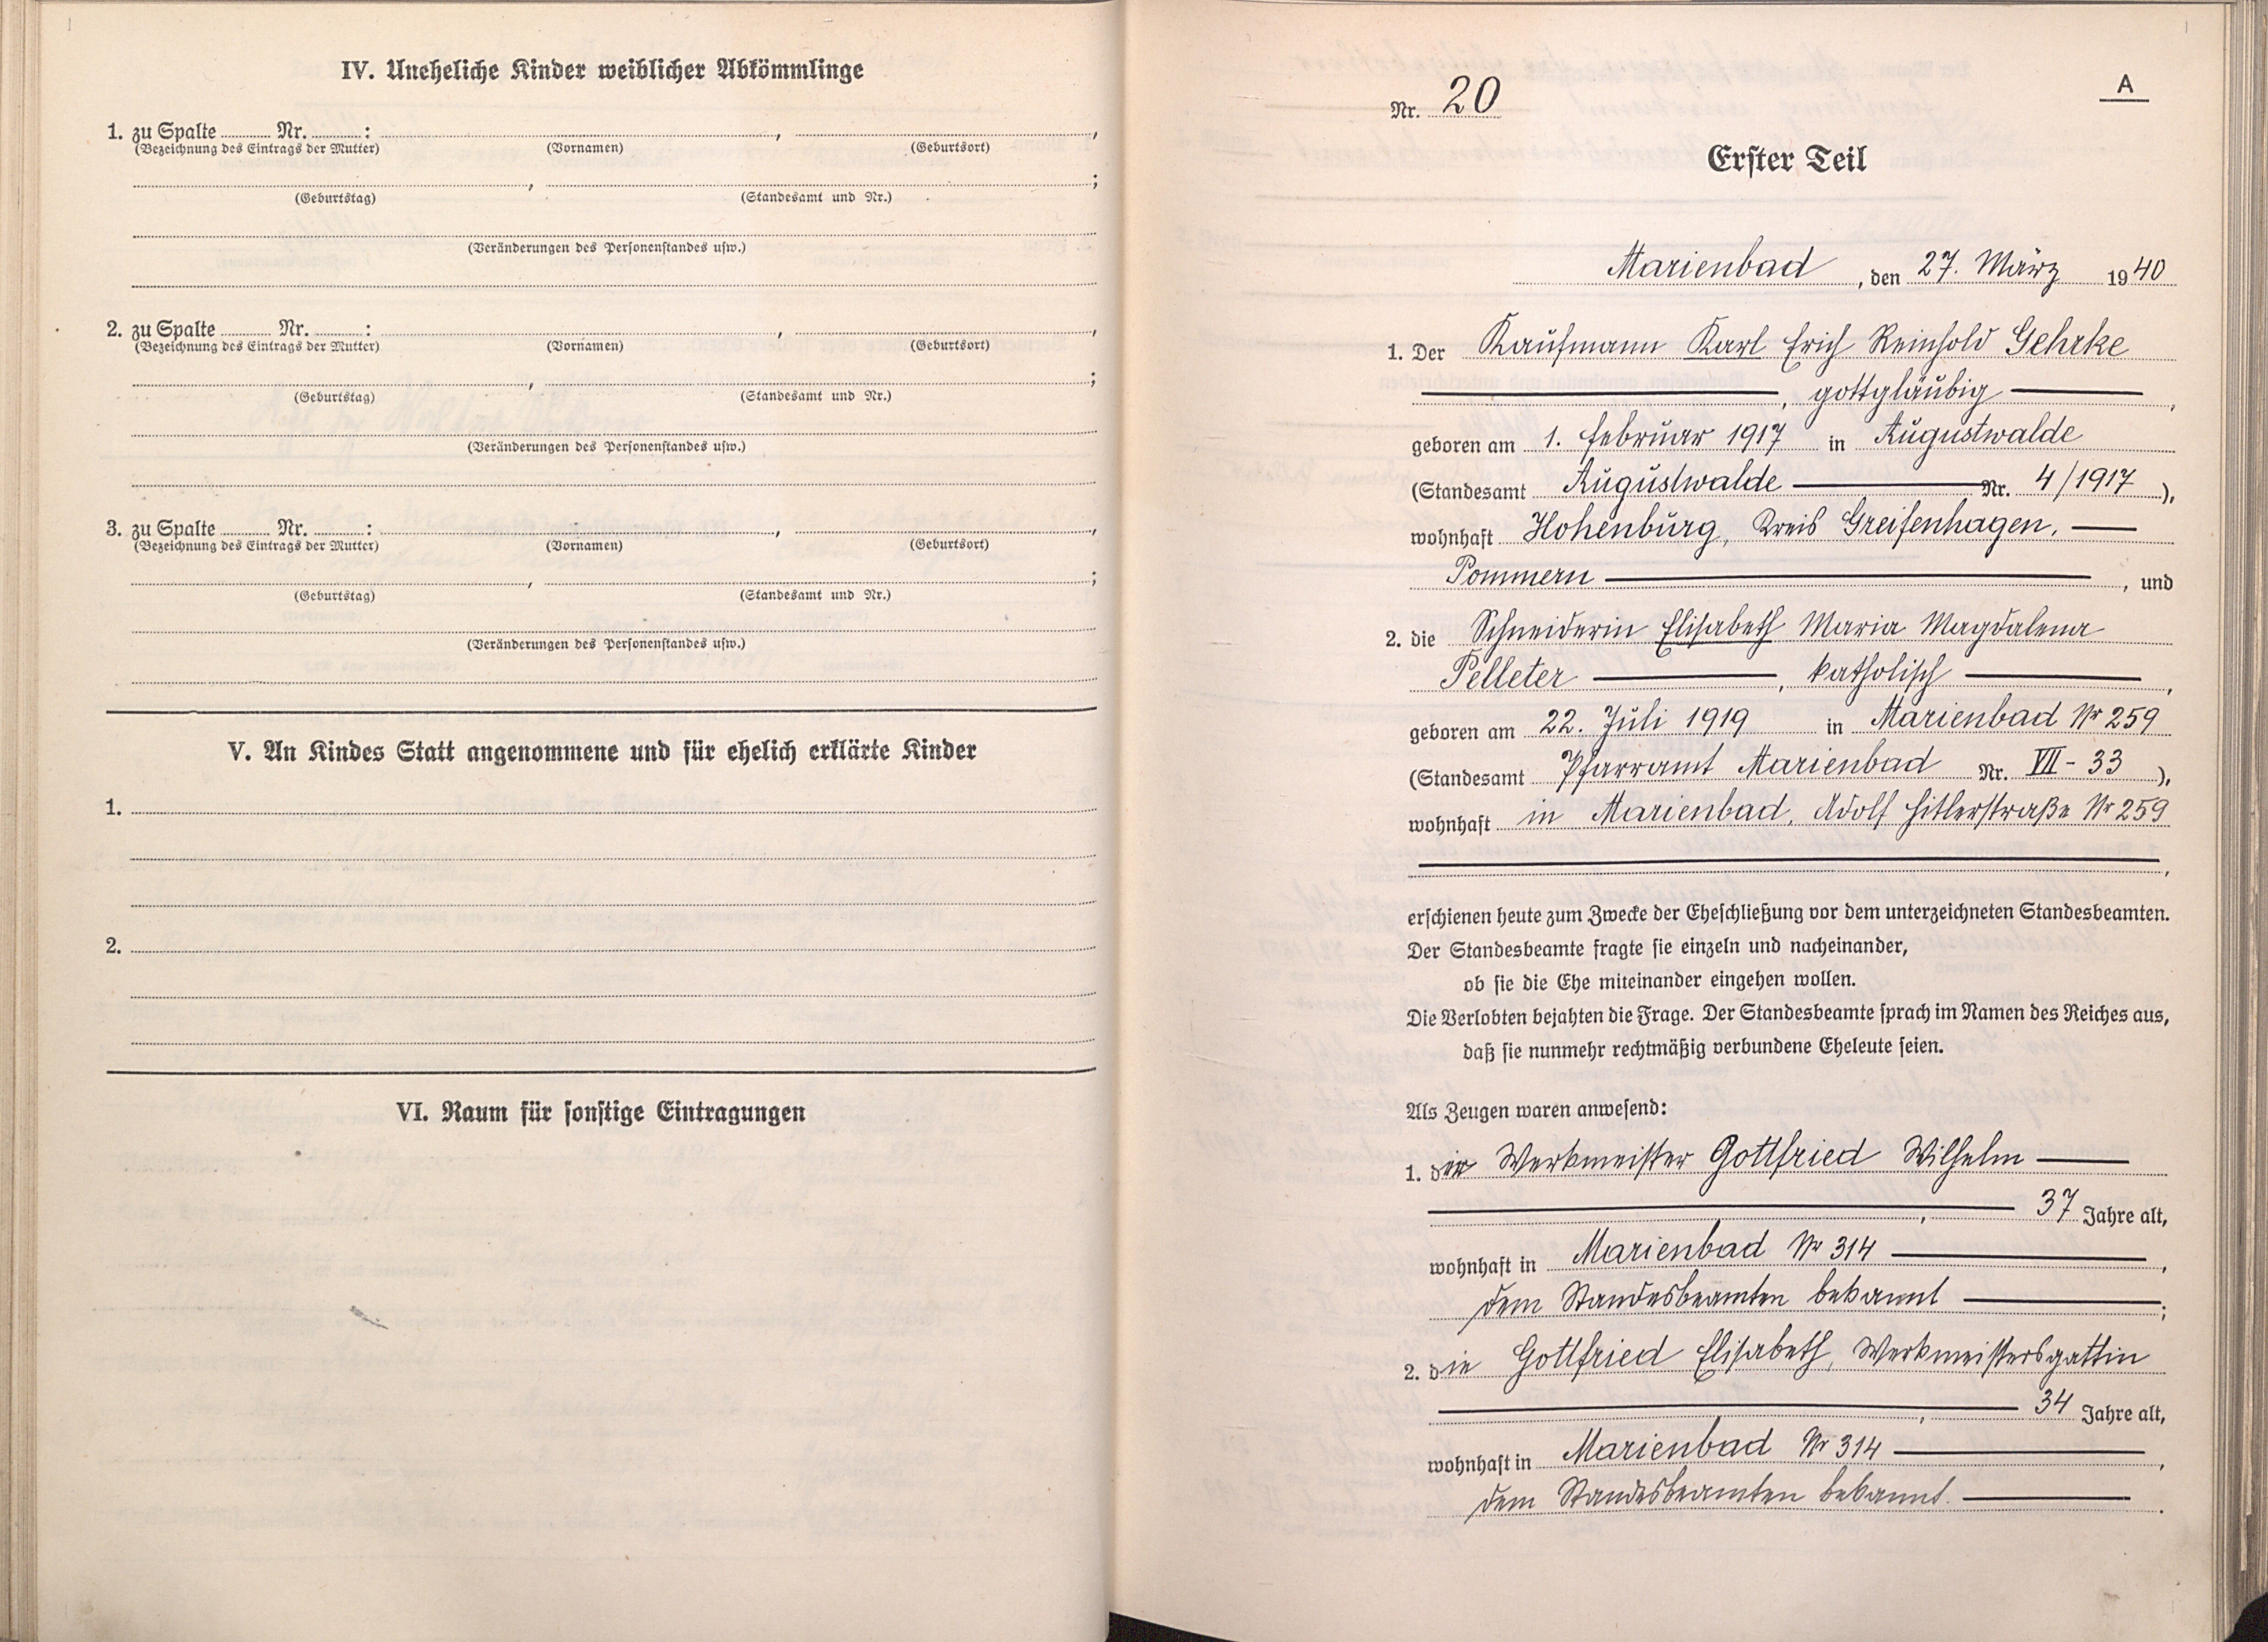 IV. Uneheliche Kinder weiblicher Abkömmlinge
1. zu Spalte Nr. : , ,
(Bezeichnung des Eintrags der Mutter) (Vornamen) (Geburtsort)
, ;
(Geburtstag) (Standesamt und Nr.)
(Veränderungen des Personenstandes usw.)
2. zu Spalte Nr. : , ,
(Bezeichnung des Eintrags der Mutter) (Vornamen) (Geburtsort)
, ;
(Geburtstag) (Standesamt und Nr.)
(Veränderungen des Personenstandes usw.)
3. zu Spalte Nr. : , ,
(Bezeichnung des Eintrags der Mutter) (Vornamen) (Geburtsort)
, ;
(Geburtstag) (Standesamt und Nr.)
(Veränderungen des Personenstandes usw.)
V. An Kindes Statt angenommene und für ehelich erklärte Kinder
1.
2.
VI. Raum für sonstige Eintragungen
A
Nr. 20
Erster Teil
Marienbad, den 27. März 1940
1. Der Kaufmann Karl Erich Reinhold Gehrke
, gottgläubig ,
geboren am 1. Februar 1917 in Augustwalde
(Standesamt Augustwalde Nr. 4/1917),
wohnhaft Hohenburg, Kreis Greifenhagen,
Pommern , und
2. die Schneiderin Elisabeth Maria Magdalena
Pelleter , katholisch ,
geboren am 22. Juli 1919 in Marienbad Nr 259
(Standesamt Pfarramt Marienbad Nr. VII - 33),
wohnhaft in Marienbad, Adolf Hitlerstraße Nr 259
,
erschienen heute zum Zwecke der Eheschließung vor dem unterzeichneten Standesbeamten.
Der Standesbeamte fragte sie einzeln und nacheinander,
ob sie die Ehe miteinander eingehen wollen.
Die Verlobten bejahten die Frage. Der Standesbeamte sprach im Namen des Reiches aus,
daß sie nunmehr rechtmäßig verbundene Eheleute seien.
Als Zeugen waren anwesend:
1. der Werkmeister Gottfried Wilhelm
, 37 Jahre alt,
wohnhaft in Marienbad Nr 314 ,
dem Standesbeamten bekannt ;
2. die Gottfried Elisabeth, Werkmeistersgattin
, 34 Jahre alt,
wohnhaft in Marienbad Nr 314 ,
dem Standesbeamten bekannt. .